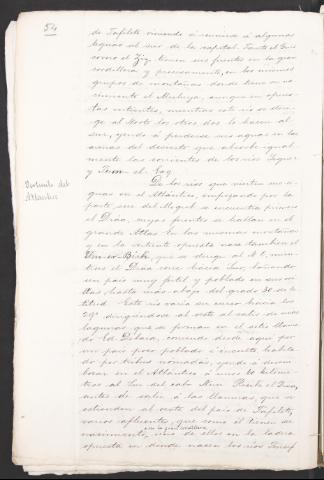 54
de Tafilete viniendo á reunirse á algunas
leguas al sur de la capital. Tanto el Guir
como el Ziz, tienen sus fuentes en la gran
cordillera y precisamente, en los mismos
grupos de montañas donde tiene su na-
cimiento el Muluya, aunque en opues-
tas vertientes, mientras este rio se diri-
ge al Norte los otros dos lo hacen al
sur, yendo á perderse sus aguas en las
arenas del desierto que absorbe igual-
mente las corrientes de los rios
y
Vertiente del
Atlántico
De los rios que vierten sus a-
guas en el Atlántico, empezando por la
parte sur del Mogreb se encuentra primero
el Draa, cuyas fuentes se hallan en el
grande Atlas en las mismas montañas
y en la vertiente opuesta nace tambien el
que se dirige al N. mien-
tras el Draa corre hacia Sur, bañando
un pais muy fertil y poblado en sus ori-
llas hasta mas abajo del grado 30 de la-
titud. Este rio varia su curso hacia los
29º dirigiendose al oeste al salir de unas
lagunas que se forman en el sitio llama-
do Ed Debaia, corriendo desde aqui por
un pais poco poblado é inculto habita-
do por tribus nomadas, yendo á desem-
bocar en el Atlántico á unos 10 kilome-
tros al Sur del cabo Nun. Recibe el Draa,
antes de salir á las llanuras, que se
estienden al oeste del pais de Tafilete,
varios afluentes, que como él tienen su
en la gran cordillera
nacimiento, uno de ellos en la ladera
opuesta en donde nacen los rios Tensif